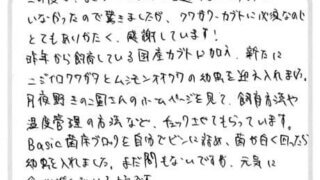 いなかったので驚きましたが、クワガタ・カブトに必須なので
とてもありがたく、感謝しています！
昨年から飼育している国産カブトに加え、新たに
ニジイロクワガタとムシモンオオクワの幼虫を迎え入れました。
月夜野きのこ園さんのホームページを見て、飼育方法や
温度管理の方法など、チェックさせてもらっています。
Basic菌床ブロックを自分でビンに詰め、菌が白く回ったら
幼虫を入れました。まだ間もないですが、元気に